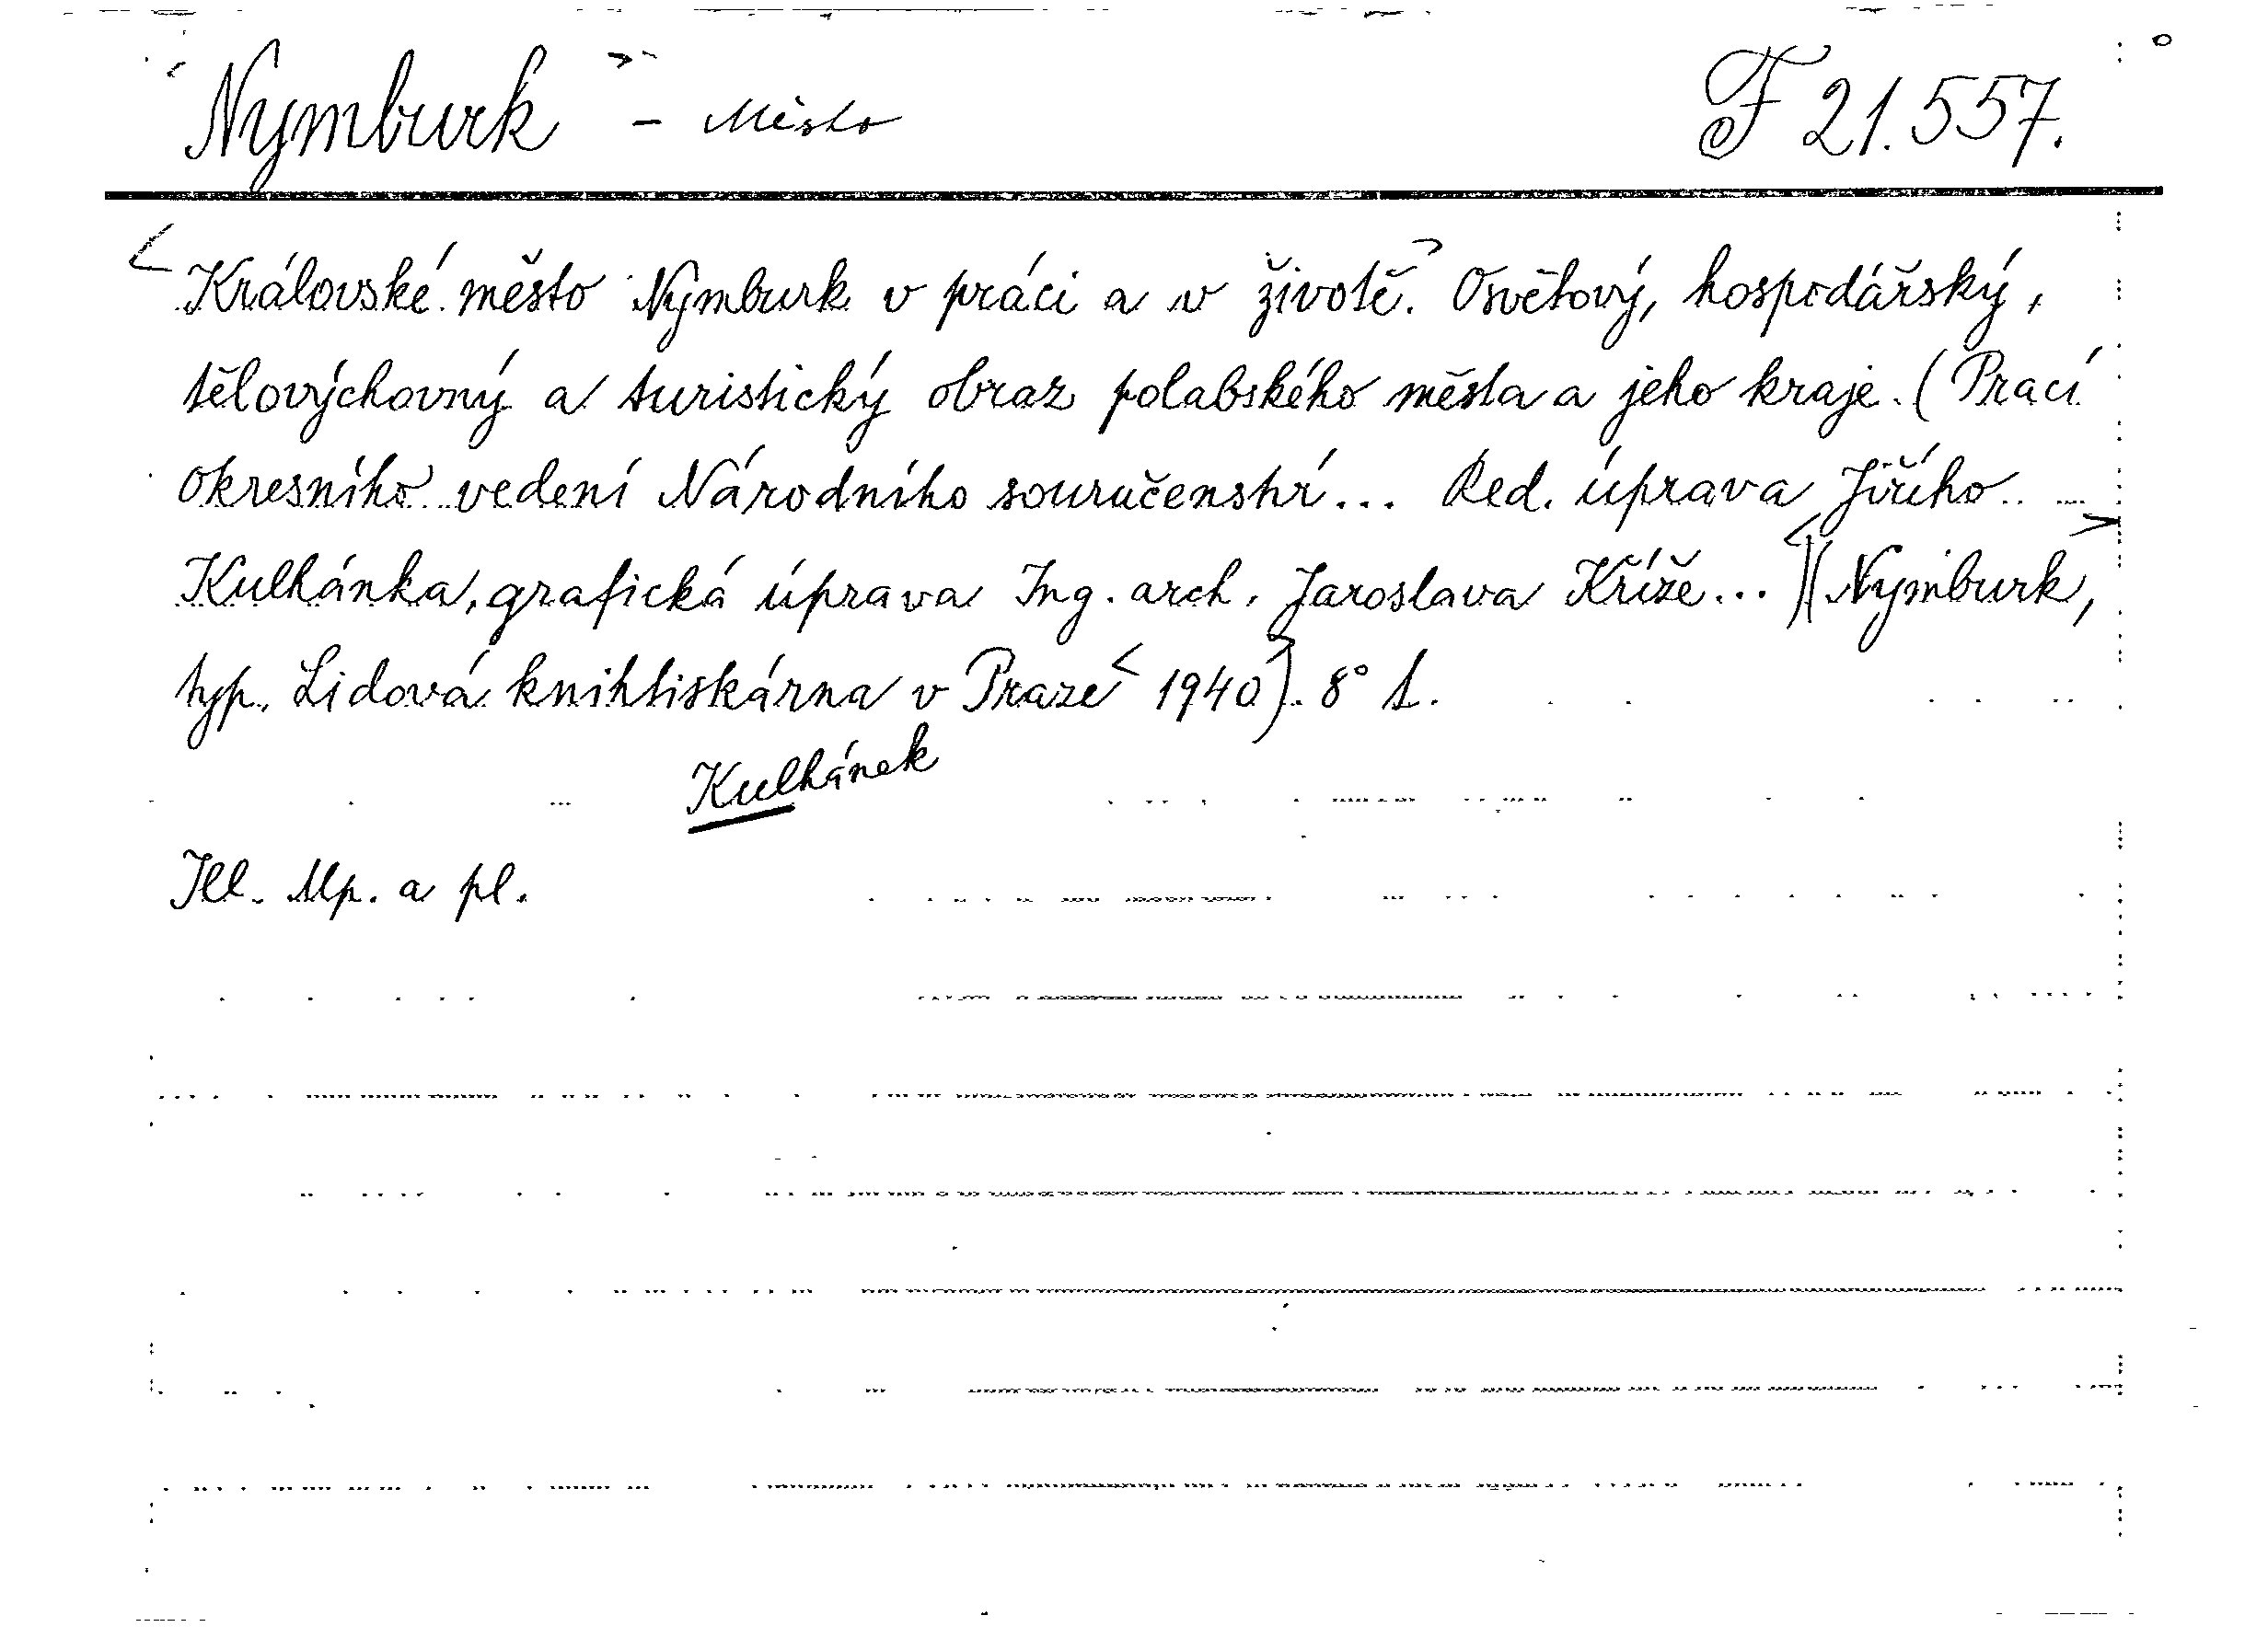 Nymburk - Město F 21.557.
Královské město Nymburk v práci a v životě. Osvětový, hospodářský,
tělovýchovný a turistický obraz polabského města a jeho kraje. (Prací
okresního vedení Národního souručenství... Red. úprava Jiřího
Kulhánka, grafická úprava Ing. arch. Jaroslava Kříže...)(Nymburk,
typ. Lidová knihtiskárna v Praze 1940). 8° 1.
Kulhánek
Ill. Mp. a pl.